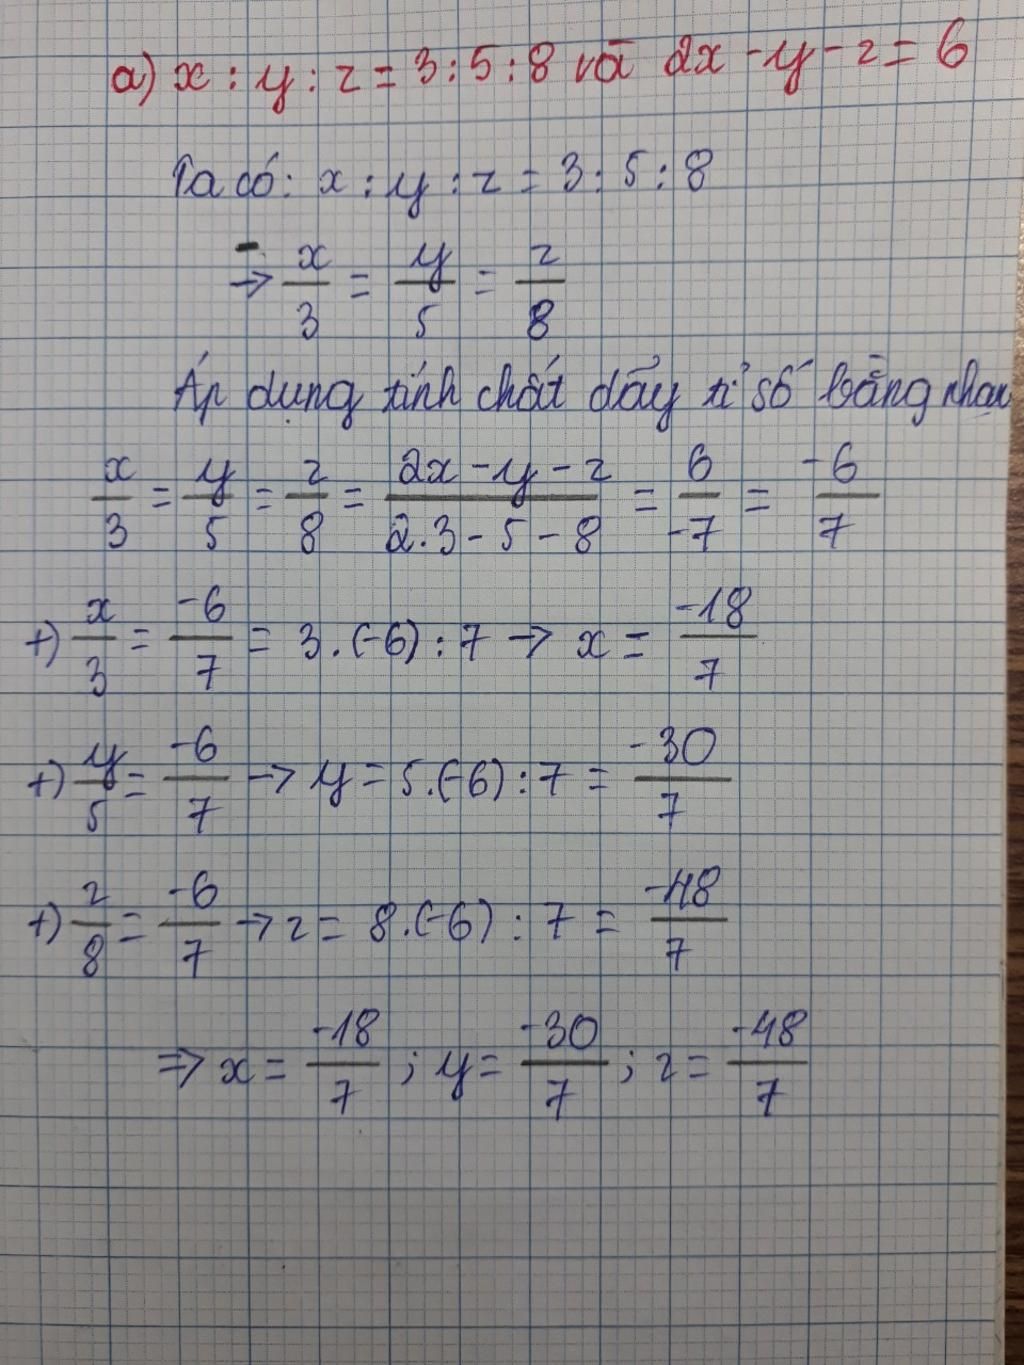 a) x : y : z = 3 : 5 : 8 và 2x - y - z = 6
Ta có: x : y : z = 3 : 5 : 8
→ x/3 = y/5 = z/8
Áp dụng tính chất dãy tỉ số bằng nhau
x/3 = y/5 = z/8 = (2x - y - z)/(2.3 - 5 - 8) = 6/-7 = -6/7
+) x/3 = -6/7 = 3.(-6) : 7 → x = -18/7
+) y/5 = -6/7 → y = 5.(-6) : 7 = -30/7
+) z/8 = -6/7 → z = 8.(-6) : 7 = -48/7
⇒ x = -18/7 ; y = -30/7 ; z = -48/7